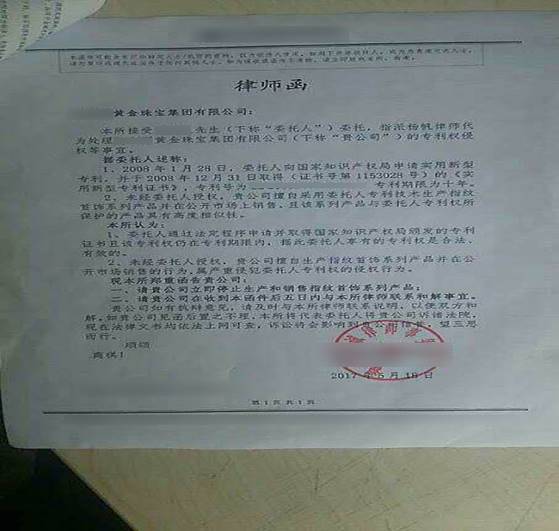 律师函
黄金珠宝集团有限公司：
本所接受 先生（下称“委托人”）委托，指派杨帆律师代
为处理 黄金珠宝集团有限公司（下称“贵公司”）的专利权侵
权等事宜。
据委托人述称：
1、2008年1月28日，委托人向国家知识产权局申请实用新型
专利，并于2008年12月31日取得（证书号第1153028号）的《实
用新型专利证书》，专利号为 专利期限为十年。
2、未经委托人授权，贵公司擅自采用委托人专利技术生产指纹
首饰系列产品并在公开市场上销售，且该系列产品与委托人专利权所
保护的产品具有高度相似性。
本所认为：
1、委托人通过法定程序申请并取得国家知识产权局颁发的专利
证书且该专利权仍在专利期限内，据此委托人享有的专利权是合法、
有效的。
2、未经委托人授权，贵公司擅自生产指纹首饰系列产品并在公
开市场销售的行为，属严重侵犯委托人专利权的侵权行为。
现本所郑重函告贵公司：
一、请贵公司立即停止生产和销售指纹首饰系列产品；
二、请贵公司在收到本函件后五日内与本所律师联系和解事宜。
贵公司如有抗辩意见，请及时与本所律师联系说明，以便双方和
解，如贵公司见函后置之不理，本所将代表委托人将贵公司诉诸法院，
现在法律文书均依法上网可查，诉讼将会影响到贵公司信誉，望三思
而行。
顺颂
商祺！
2017年5月18日
第1页共1页